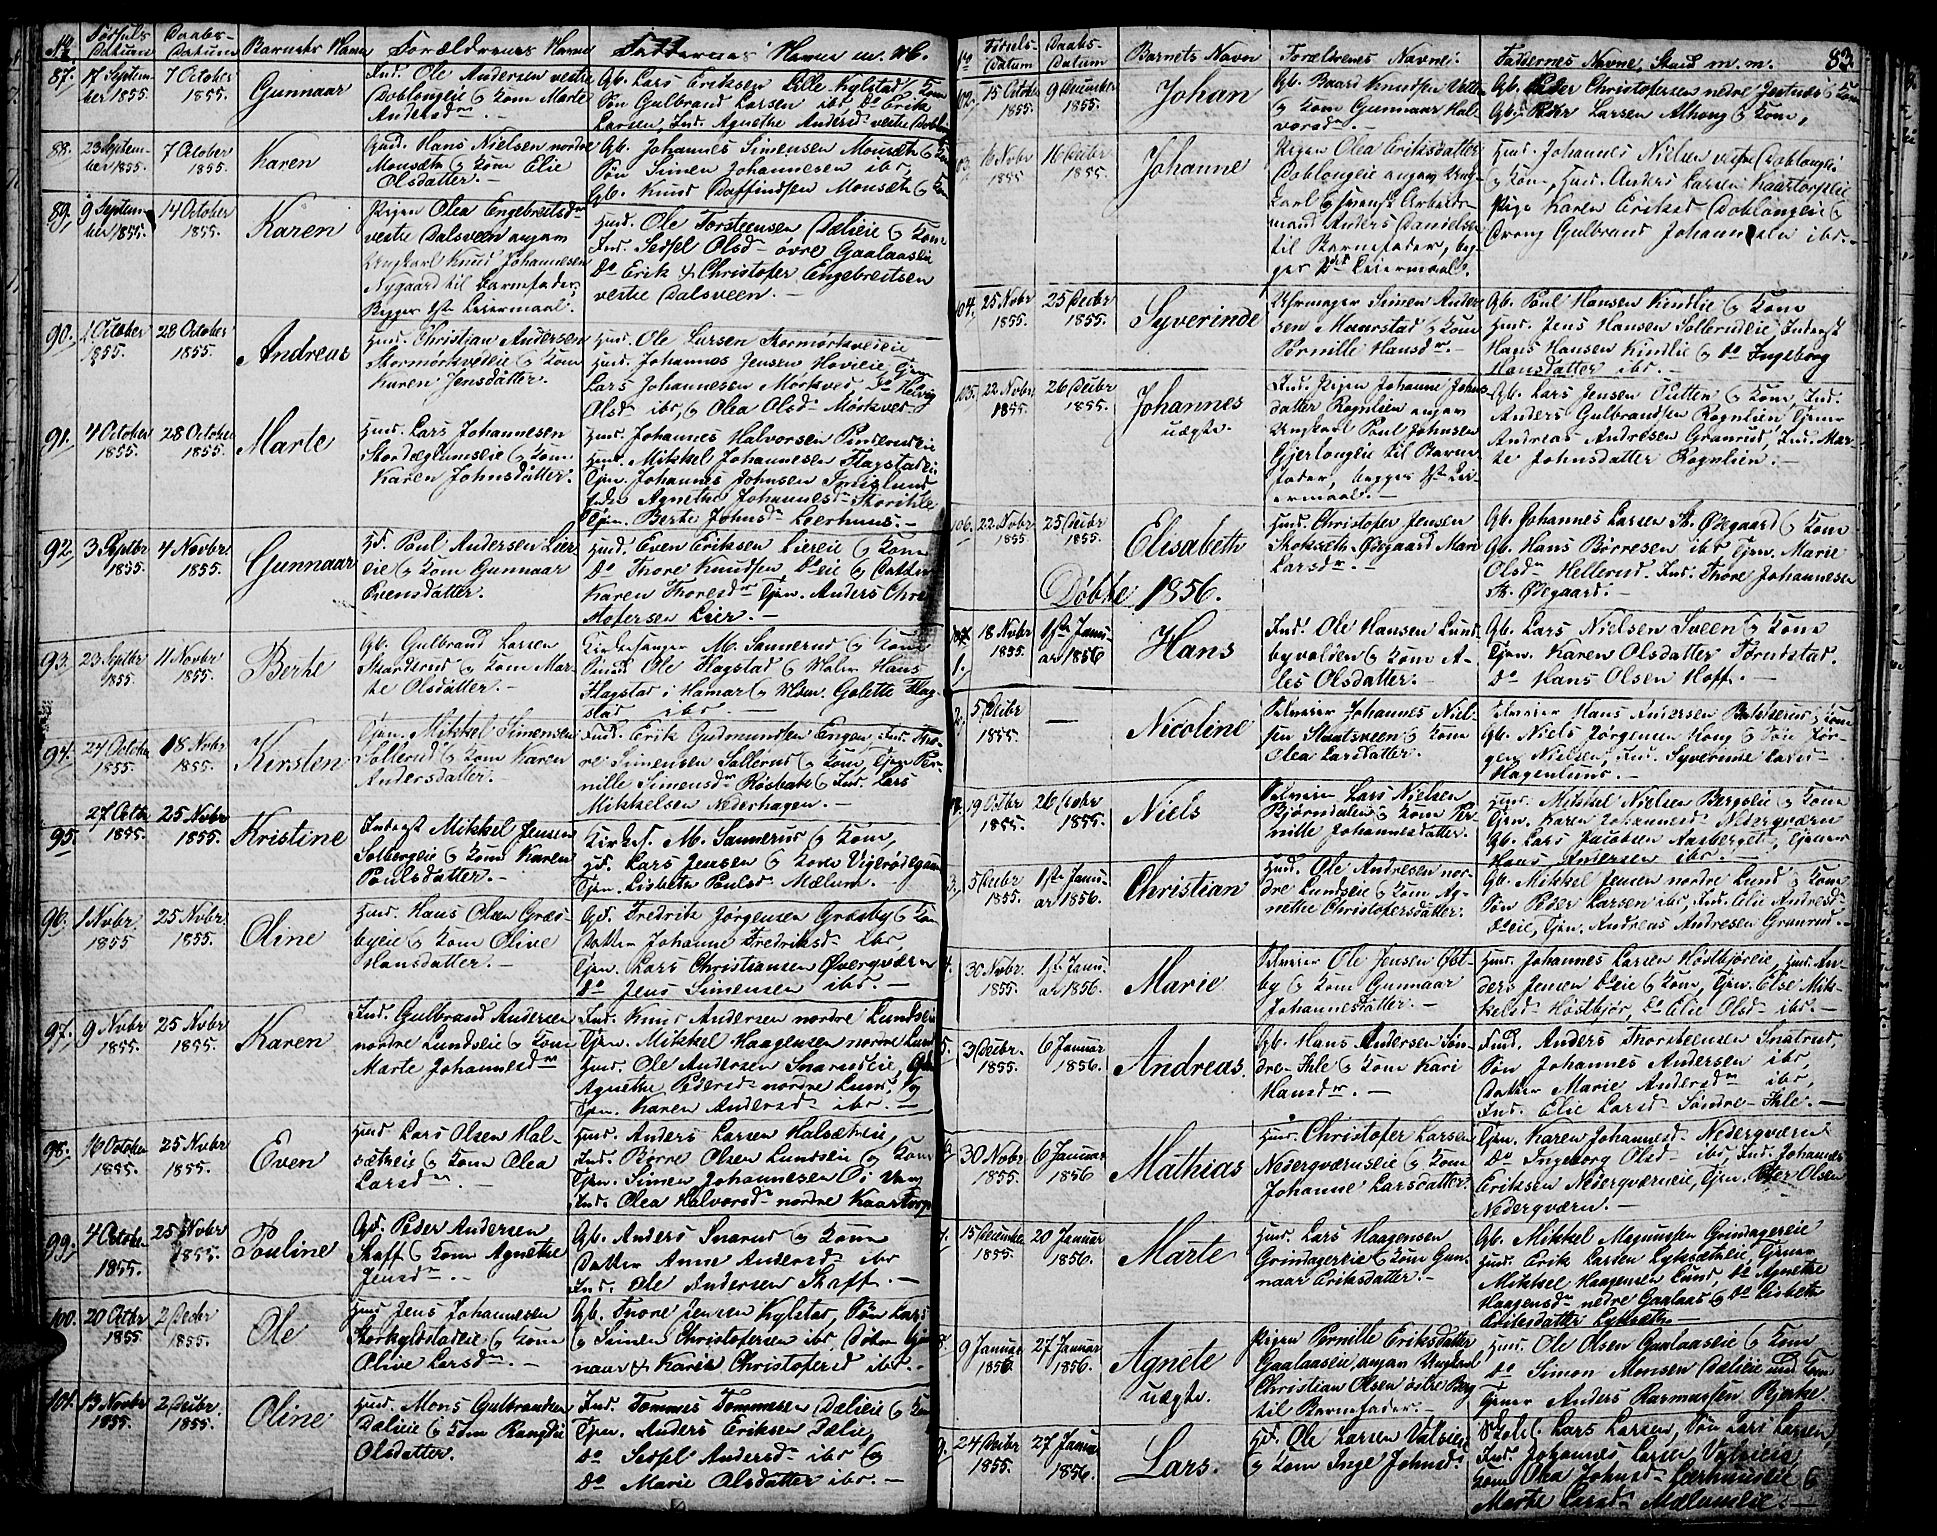 No. Fødsels Datum Daabs- Datum Barnets Navn Forældrenes Navne Faddernes Navne m. v.
87. 17 September 1855. 7 October 1855. Gunnaar
Ind. Ole Andersen vestre
Doblougeie og Kone Marte
Andersdr. –
Gb. Lars Eriksen Lille Kylstad og Kone
Søn Gulbrand Larsen ibr. Do Erik
Larsen, Ind. Agnethe Andersd. vestre Doblou
88. 23 September 1855. 7 October 1855. Karen
Gaud. Hans Nielsen nordre
Monsæth og Kone Elie
Olsdatter. –
Gb. Johannes Simensen Monsæth og Kone
Søn Simen Johannesen ibr,
Gb. Knud Daffindsen Monsæth og Kone
89. 9 September 1855. 14 October 1855. Karen
Pigen Olea Engebretsdr
vestre Dalsveen angav
Ungkarl Knud Johannesen
Nygaard til Barnefader,
Begges 1ste Leiermaal.
Huusd. Ole Torstensen Dælieie og Kone
Ind. Sidsel Olsd. øvre Gaalaaseie
Do Erik & Christofer Engebretsen
vestre Dalsveen. –
90. 1 October 1855. 28 October 1855. Andreas
Huusd. Christian Andersen
Stormørkvedeie og Kone
Karen Jensdatter.
Huusd. Ole Larsen Stormørkvedeie
Huusd. Johannes Jensen Hovieie, Tjen.
Lars Johannesen Mørkved, Do Helvig
Olsd. ibr, og Olea Olsd. Mørkved –
91. 4 October 1855. 28 October 1855. Marte
Huusd. Lars Johannesen
Stordæglumseie og Kone
Karen Johnsdatter.
Huusd. Johannes Halvorsen Pinderudeie
Huusd. Mikkel Johannesen Flagstadeie
Tjen. Johannes Johnsen Smeslund
Agnethe Johannesdr Storihle
Tjen. Berte Johnsdr Leerhuus. –
92. 3 Septbr 1855. 4 Novbr. 1855. Gunnaar
Hd. Poul Andersen Lier
eie og Kone Gunnaar
Evensdatter.
Huusd. Even Eriksen Liereie og Kone
Do Thore Knudsen Do eie og Datter
Karen Thoresdr Tjen. Anders Chri
stofersen Lier. –
93. 23 Septbr 1855. 11 Novbr 1855. Berthe
Gb. Gulbrand Larsen
Skarderud og Kone Mar
te Olsdatter. –
Kirkesanger M. Sannerud og Kone
Ole Flagstad og Maler Hans
Flagstad i Hamar og Mdm. Golette Flag
stad ibr. –
94. 24 October 1855. 18 Novbr 1855. Kirsten
Tjen. Mikkel Simensen
Sollerud og Kone Karen
Andersdatter. –
Ind. Erik Gudmundsen Engen, Ind. Tho
re Simensen Sollerud og Kone, Tjen. Per
nille Simensdr Rosbak og Ind. Lars
Mikkelsen Nederhagen. –
95. 27 Octbr 1855. 25 Novbr 1855. Kristine
Inderst Mikkel Jensen
Solbergeie og Kone Karen
Poulsdatter. –
Kirkes. M. Sannerud og Kone,
Hd. Lars Jensen og Kone Vigerødegaard
Tjen. Lisbeth Poulsd. Mælum. –
96. 1 Novbr 1855 25 Novbr 1855. Oline
Huusd. Hans Olsen Græs
byeie og Kone Olive
Hansdatter. –
Gd. Fredrik Jørgensen Græsby og Kone
Datter Johanne Fredriksd. ibr
Tjen. Lars Christiansen Øverqværn
Do Jens Simensen ibr. –
97. 9 Novbr 1855. 25 Novbr 1855. Karen
Ind. Gulbrand Andersen
nordre Lundseie og Kone
Marte Johannesdr
Ind. Knud Andersen nordre Lundseie
Tjen. Mikkel Haagensen nordre Lund
Huusd. Ole Andersen Snarudeie,
Agnethe Pedersd. nordre Lund, og
Tjen. Karen Andersd. ibr. –
98. 16 October 1855. 25 Novbr 1855. Even
Huusd. Lars Olsen Hal
sætreie og Kone Olea
Larsdr. –
Huusd. Anders Larsen Halsætreie,
Ind. Børre Olsen Lundseie og Kone
Tjen. Simen Johannesen
Ind. Olea Halvorsdr nordre Kaartorp
99. 4 October 1855. 25 Novbr 1855. Pouline
Gd. Peder Andersen
Skaff og Kone Agnethe
Jensdr. –
Gb. Anders Snarud og Kone
Datter Anne Andersd. ibr
Ind. Ole Andersen Skaff. –
100. 20 Octbr 1855 2 Decbr 1855. Ole
Huusd. Jens Johannesen
Storkylstadeie og Kone
Olive Larsdr. –
Gb. Thore Jensen Kylstad, Søn Lars
og Simen Christofersen ibr, Gun
naar & Karen Christofersd. ibr. –
101. 13 Novbr 1855. 2 Decbr 1855. Oline
Huusd. Mons Gulbrandsen
Dælieie og Kone Rangdi
Olsdatter.
Ind. Tommes Tommesen Dælieie og Kone
Tjen. Anders Eriksen Dælie,
Do Sidsel Andersd. ibr og
Do Marie Olsdatter ibr. –
No Fødsels- Datum Daabs- Datum Barnets Navn Forældrenes Navne. Faddernes Navne, Stand m. m. 83.
102. 15 October 1855. 9 December 1855. Johan
Gb. Baard Knudsen
og Kone Gunnaar Hal
vorsdr. –
Gb. Peder Christofersen nedre Jestrud og Kone
Gb. Peder Larsen Alhoug og Kone,
103. 16 Novbr 1855 16 Decbr 1855. Johanne
Pigen Olea Eriksdatter
Doblougeie angav Ung
karl og svensk Arbeids
mand Anders Danielsen
til Barnefader, beg
ges 2det Leiermaal.
Huusd. Johannes Nielsen vestre Doblougeie
og Kone, Huusd. Anders Larsen Kaartorpeie
Pige Karen Eriksd. Doblougeie og
Dreng Gulbrand Johannesen ibr. –
104. 25 Novbr 1855. 25 Decbr 1855. Syverinde
Uhrmager Simen Ander
sen Maarstad og Kone
Pernille Hansdr. –
Gb. Poul Hansen Kindlie og Kone
Huusd. Jens Hansen Solbrudeie, Inderst
Hans Hansen Kindlie og Do Ingeborg
Hansdatter ibr. –
105. 22 Novbr 1855. 26 Decbr 1855. Johannes
uægte.
Ind. Pigen Johanne Johns
datter Rognlien angav
Ungkarl Poul Johnsen
Gjerlougeie til Barne
fader, begges 1ste Lei
ermaal. –
Gb. Lars Jensen Sutten og Kone Ind.
Anders Gulbrandsen Rognlien, Tjener
Andreas Andresen Granrud, Ind. Mar
te Johnsdatter Rognlien. –
106. 22 Novbr 1855 25 Decbr 1855. Elisabeth
Huusd. Christofer Jensen
Stoksæth-Ødegaard Mari
Larsdr. –
Gb. Johannes Larsen St. Ødegaard og Kone
Gb. Hans Børresen ibr Tjen. Marie
Olsdr Hellerud. Ind. Thore Johannesen
St. Ødegaard. –
Døbte 1856.
107. 1. 18 Novbr 1855. 1ste Janu ar 1856 Hans
Ind. Ole Hansen Lund
byvolden og Kone A
les Olsdatter. –
Gb. Lars Nielsen Sveen og Kone
Tjen. Karen Olsdatter Torudstad.
Do Hans Olsen Hoff. –
2. 5 Decbr 1855. – Nicoline
Selveier Johannes Niel
sen Staatsveen og Kone
Olea Larsdatter.
Selveier Hans Andersen Balstserud og Kone
Gb. Niels Jørgensen Houg og Søn Jør
gen Nielsen, Ind. Syverine Lars
Hagenlund. –
19 Octbr 1855. 26 Decbr 1855. Niels
Selveier Lars Nielsen
Bjørndalen og Kone Per
nille Johannesdatter.
Huusd. Mikkel Nielsen Bergseie og Kone
Tjen. Karen Johannesd. Nederqværn
Gb. Lars Jacobsen Aasberget, Tjener
Hans Andersen ibr. –
3. 5 Decbr 1855. 1ste Janu ar 1856. Christian
Huusd. Ole Andresen nor
dre Lundseie og Kone Ag
nethe Christofersdatter.
Gb. Mikkel Jensen nordre Lund og Kone
Søn Peder Larsen ibr, Ind. Elie Andresd.
Do eie, Tjen. Andreas Andresen Granrud. –
4. 30 Novbr. 1855. 1ste Janu ar 1856. Marie
Selveier Ole Jensen Øst
by og Kone Gunnaar
Johannesdatter. –
Huusd. Johannes Larsen Høstbjøreie, Huusd. An
ders Jensen Do eie og Kone, Tjen. Else Mik
kelsd. Høstbjør, Do Elie Olsd. ibr. –
5. 3 Decbr. 1855. 6 Januar 1856. Andreas.
Gb. Hans Andersen Søn
dre-Ihle og Kone Kari
Hansdr. –
Ind. Anders Thorsteensen Snarud,
Søn Johannes Andersen ibr,
Datter Marie Andersdr ibr,
Ind. Elie Larsd. Søndre-Ihle. –
6. 30 Novbr 1855. 6 Januar 1856 Mathias
Huusd. Christofer Larsen
Nederqværnseie og Kone
Johanne Larsdatter.
Tjen. Karen Johannesd. Nederqværn
Do Ingeborg Olsd. ibr, Ind. Johannes
Eriksen Nederqværneie, Tjen. Peder Olsen
Nederqværn. –
7. 15 December 1855. 20 Januar 1856. Marte
Huusd. Lars Haagensen
Grindagereie og Kone Gun
naar Eriksdatter. –
Gb. Mikkel Magnussen Grindagereie
Huusd. Erik Larsen Lyksætreie, Tjener
Mikkel Haagensen Lund, Do Agnethe
Haagensdr nedre Gaalaas og Do Lisbeth
Eriksdatter Lyksæth. –
8. 9 Januar 1856. 27 Januar 1856. Agnete
uægte.
Pigen Pernille Eriksdatter
Gaalaaseie, angav Ungkarl
Christian Olsen østre Berg
til Barnefader. –
Huusd. Ole Olsen Gaalaaseie og Kone
Do Simon Monsen Dælieie med Kone
Tjener Anders Rasmussen Bjerke.
9. 24 Decbr 1855. 27 Januar 1856. Lars.
Hd. Ole Larsen Valseie
og Kone Inge Johnsdr
Lars Larsen, Søn Lars Larsen,
Ind. Johannes Larsen Valseie
Kone Olea Johnsd. Leerhuuseie og
Marthe Larsdr Mælumseie. –